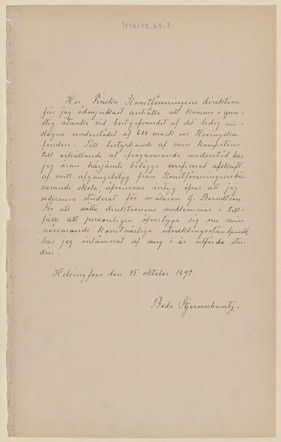 Hos Finska Konstföreningens direktion
får jag ödmjukast anhålla att komma i gun-
stig åtanke vid bortgifvandet af det ledig an-
slagna understödet af 600 mark ur Hovingska
fonden. Till bestyrkande af min kompetens
till erhållande af ifrågavarande understöd har
jag äran härjämte bilägga verificerad afskrift
af mitt afgångsbetyg från Konstföreningens här-
varande skola, äfvensom intyg öfver att jag
sedermera studerat för målaren G. Berndtson.
För att sätta direktionens medlemmar i till-
fälle att personligen öfvertyga sig om min
närvarande konstnärliga utvecklingsståndpunkt
har jag inlämnat af mig i år utförda stu-
dier.
Helsingfors den 25 oktober 1892.
Beda Stjernschantz.